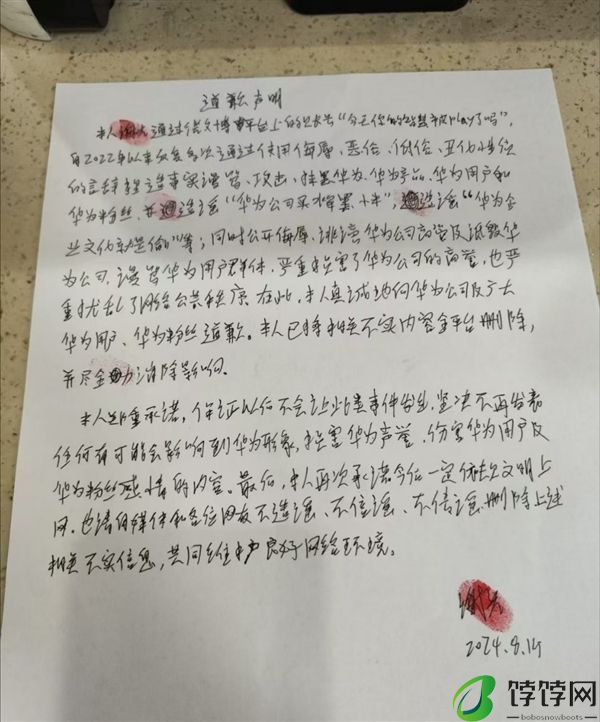 道歉声明
本人通过微文博平台上的账号"今天你的智慧皮play了吗",
自2022年以来反复多次通过使用侮辱、恶俗、低俗、丑化性质
的言辞捏造事实谩骂、攻击、抹黑华为、华为产品、华为用户和
华为粉丝,并造谣"华为公司买水军黑小米",造谣"华为企
业文化就是偷"等;同时公开侮辱、诽谤华为公司高管及诋毁华
为公司,谩骂华为用户群体,严重损害了华为公司的商誉,也严
重扰乱了网络公共秩序。在此,本人真诚地向华为公司及广大
华为用户、华为粉丝道歉。本人已将相关不实内容全平台删除,
并尽全力消除影响。
本人郑重承诺,保证以后不会让此类事件发生,坚决不再发表
任何有可能会影响到华为形象,损害华为声誉,伤害华为用户及
华为粉丝感情的内容。最后,本人再次承诺今后一定依法文明上
网。也请自媒体和各位网友不造谣、不信谣、不传谣,删除上述
相关不实信息,共同维护良好网络环境。
2024.8.14
饽饽网
bobosnowboots